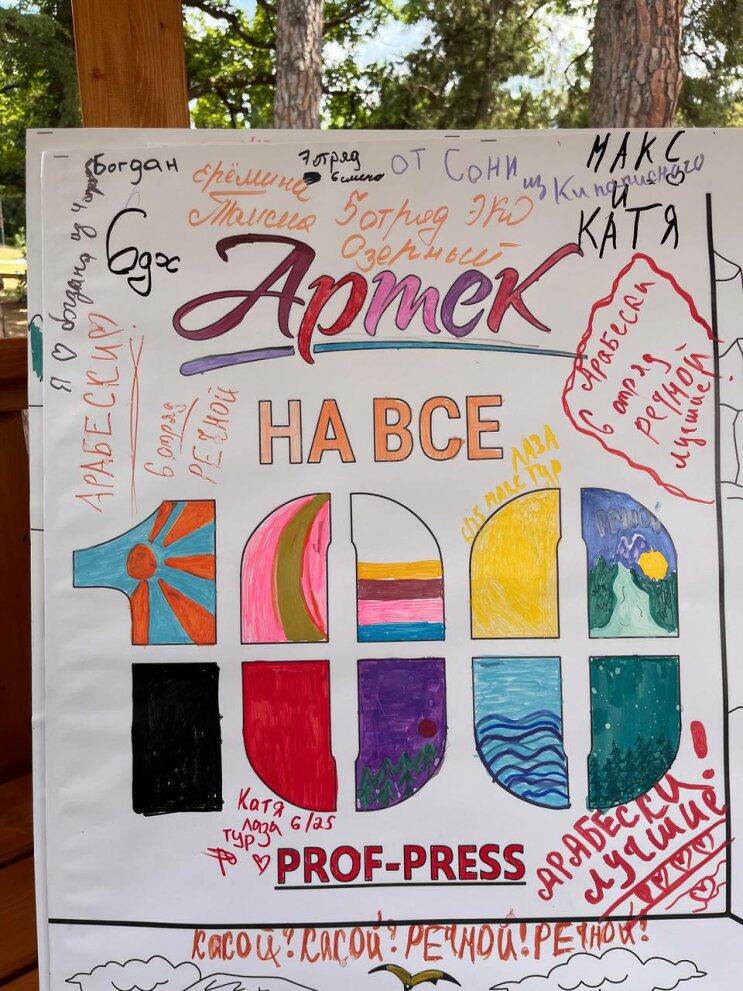 Богдан
7 отряд
6 смена
от Сони
из Кипарисного
МАКС
И
КАТЯ
Ерёмина
Таисия 5 отряд ЭКО
Озерный
6дх
Я ♡ богдана из 4 отряда
Артек
АРАБЕСКИ♡!
6 отряд
РЕЧНОЙ
Арабески
6 отряд
РЕЧНОЙ
лучшие!
НА ВСЕ
ЛАЗА
6/25 МАКС ТУР
100
РЕЧНОЙ
Катя
лаза 6/25
тур
PROF-PRESS
АРАБЕСКИ
ЛУЧШИЕ!
КАСОЙ? КАСОЙ? РЕЧНОЙ! РЕЧНОЙ!